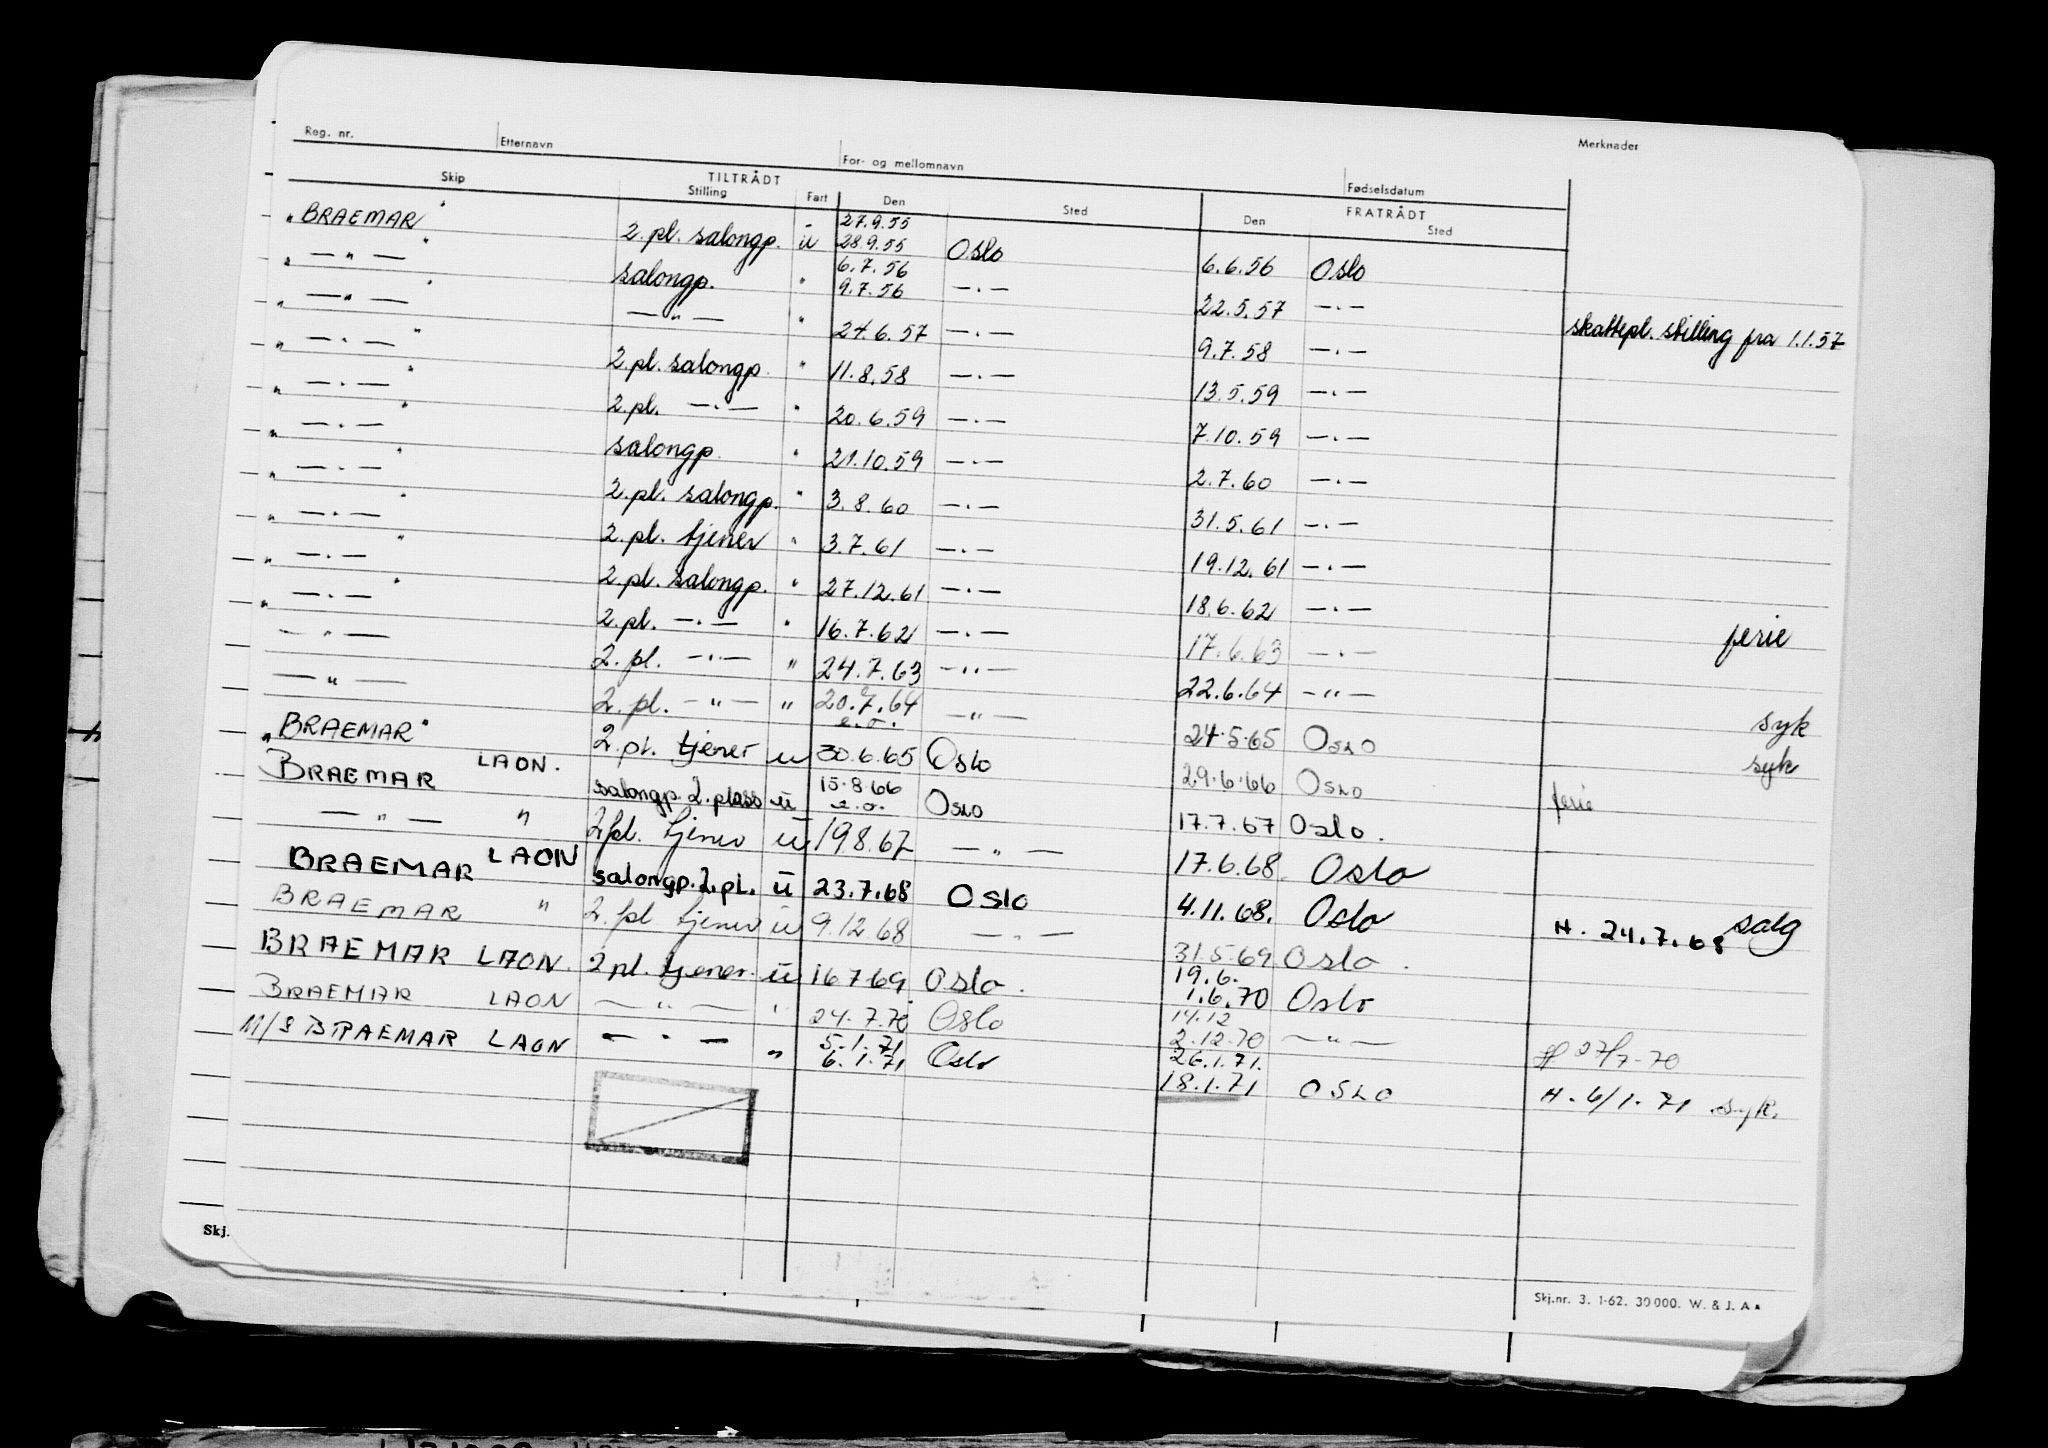 Reg. nr. Etternavn For- og mellomnavn Fødselsdatum Merknader
TILTRÅDT FRATRÅDT
Skip Stilling Fart Den Sted Den Sted
27.9.55
"BRAEMAR" 2. pl. salongp. u 28.9.55 Oslo 6.6.56 Oslo
6.7.56
" — " — " salongp. " 9.7.56 — . — 22.5.57 — . —
" — " — " — " — " 24.6.57 — . — 9.7.58 — . — skattepl. stilling fra 1.1.57
" — . — " 2. pl. salongp. " 11.8.58 — . — 13.5.59 — . —
" — . — " 2. pl. — . — " 20.6.59 — . — 7.10.59 — . —
" — . — " salongp. " 21.10.59 — . — 2.7.60 — . —
" — . — " 2. pl. salongp. " 3.8.60 — . — 31.5.61 — . —
" — . — " 2. pl. tjener " 3.7.61 — . — 19.12.61 — . —
" — . — " 2. pl. salongp. " 27.12.61 — . — 18.6.62 — . —
" — . — " 2. pl. — . — " 16.7.62 — . — 17.6.63 — . — ferie
— " — 2. pl. — . — " 24.7.63 — " — 22.6.64 — " —
— " — 2. pl. — " — " 20.7.64 — " — 24.5.65 OSLO syk
e.o.
"BRAEMAR" 2. pl. tjener u 30.6.65 Oslo 29.6.66 OSLO syk
BRAEMAR LAON. salongp. 2. plass ü 15.8.66 OSLO 17.7.67 Oslo. ferie
e.o.
— " — " 2 pl. tjener ü 19.8.67 — " — 17.6.68 Oslo
BRAEMAR LAON salongp. 2. pl. ü 23.7.68 Oslo 4.11.68. Oslo H. 24.7.68 salg
BRAEMAR " 2. pl tjener ü 9.12.68 — . — 31.5.69 Oslo.
19.6.
BRAEMAR LAON. 2 pl. tjener. ü 16 7 69 Oslo. 1.6.70 Oslo
14.12
BRAEMAR LAON — " — " 24.7.70 Oslo 2.12.70 — " — 27/7-70
5.1.71 26.1.71.
M/S BRAEMAR LAON — . — " 6.1.71 Oslo 18.1.71 OSLO H. 6/1.71 syk.
Skj.
Skj.nr. 3. 1-62. 30 000. W. & J. A